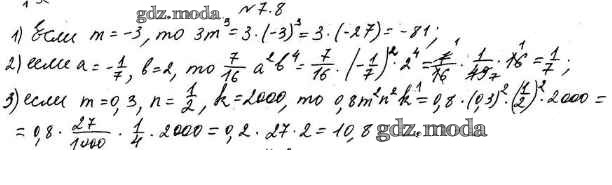 gdz.moda
№7.8
1) Если m=-3, то 3m³=3·(-3)³=3·(-27)=-81;
2) если a=-1/7, b=2, то 7/16 a²b⁴=7/16·(-1/7)²·2⁴=7/16·1/49·16=1/7;
3) если m=0,3, n=1/2, k=2000, то 0,8m²n²k¹=0,8·(0,3)²·(1/2)²·2000=
=0,8·27/1000·1/4·2000=0,2·27·2=10,8 gdz.moda